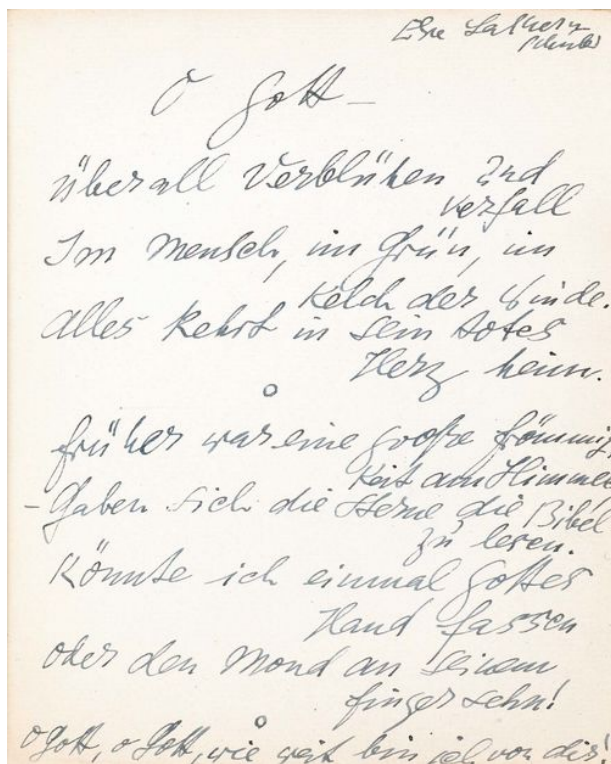 Else Lasker-
Schüler
O Gott –
Überall Verblühen und
verfall
Im Mensch, im Grün, im
Kelch der Winde.
Alles kehrt in sein totes
Herz heim.
früher war eine große frömmig
keit am Himmel
– Gaben sich die Sterne die Bibel
zu lesen.
Könnte ich einmal Gottes
Hand fassen
oder den Mond an seinem
finger sehn!
O Gott, o Gott, wie weit bin ich von dir!